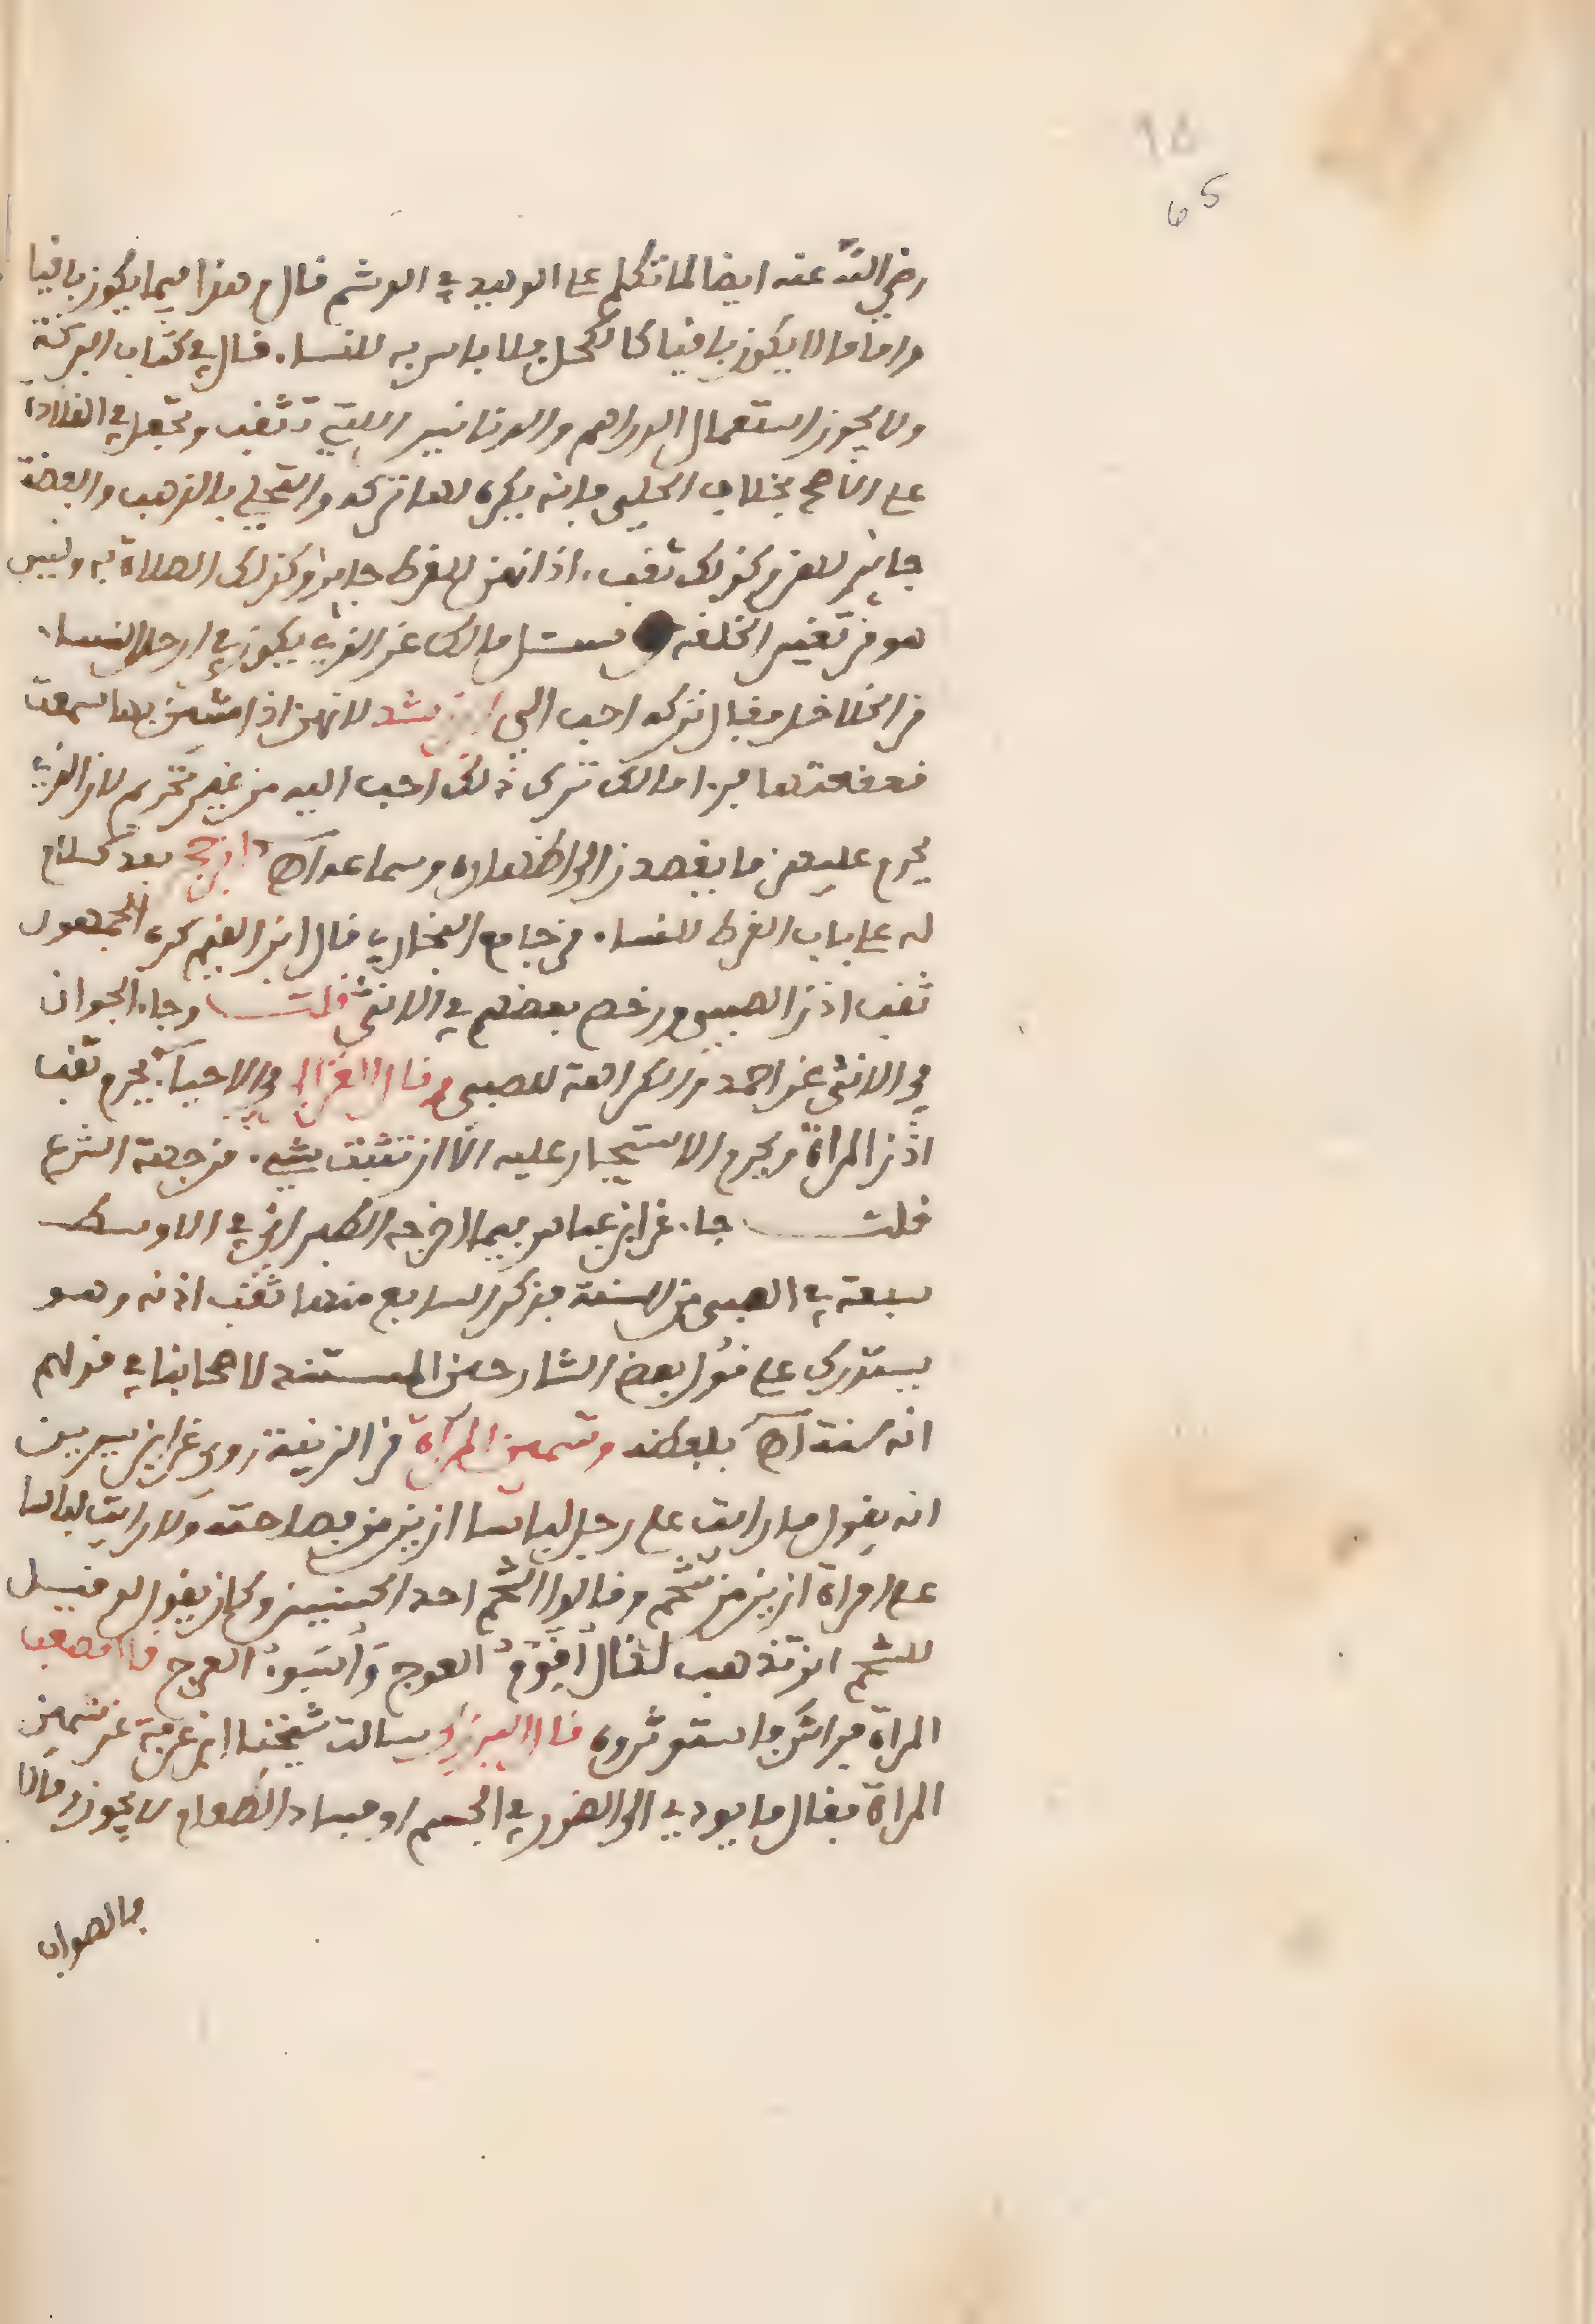 65
رضي الله عنه ايضا لما تكلم على الوعيد في الوشم قال وهذا فيما يكون باقيا
واما ما لا يكون باقيا كالكحل فلا باس به للنساء قال في كتاب البركة
ولا يجوز استعمال الدراهم والدنانير اللتي تثقب وتجعل في القلادة
على الاصح بخلاف الحلي فانه يكره لها تركه والتحلي بالذهب والفضة
جايز لهن وكذلك ثقب اذانهن للقرط جايز وكذلك الصلاة به وليس
هو من تغيير الخلقة وسئل مالك عن الذي يكون في ارجل النساء
من الخلاخل فقال تركه احب الي ابن رشد لانهن اذا مشين بها سمعت
قعقعتها فراى مالك ترك ذلك احب اليه من غير تحريم لان الذي
يحرم عليهن ما يقصدن الى اظهاره وسماعه اهـ ابن حجر بعد كلام
له على باب القرط للنساء من جامع البخاري قال ابن القيم كره الجمهور
ثقب اذن الصبي ورخص بعضهم في الانثى قلت وجاء الجواز
في الانثى عن احمد والكراهة للصبي وقال الغزالي في الاحياء يحرم ثقب
اذن المراة ويحرم الاستيجار عليه الا ان تثبت شيء من جهة الشرع
قلت جاء عن ابن عباس فيما اخرجه الطبراني في الاوسط
سبعة في الصبي من السنة فذكر السابع منها ثقب اذنه وهو
يستدرك على قول بعض الشارحين لا مستند لاصحابنا في قولهم
انه سنة اهـ بلفظه وتسمين المراة من الزينة روي عن ابن سيرين
انه يقول ما رايت على رجل لباسا ازين من فصاحة ولا رايت لباسا
على امراة ازين من شحم وقالوا الشحم احد الحسنيين وكان يقول لو قيل
للشحم اين تذهب لقال اقوم العوج
المراة فراش فاستوثروه قال البرزلي وسالت شيخنا ابن عرفة عن تسمين
المراة فقال ما يودي الى الضرر في الجسم او فساد الطعام لا يجوز والا
فالصواب